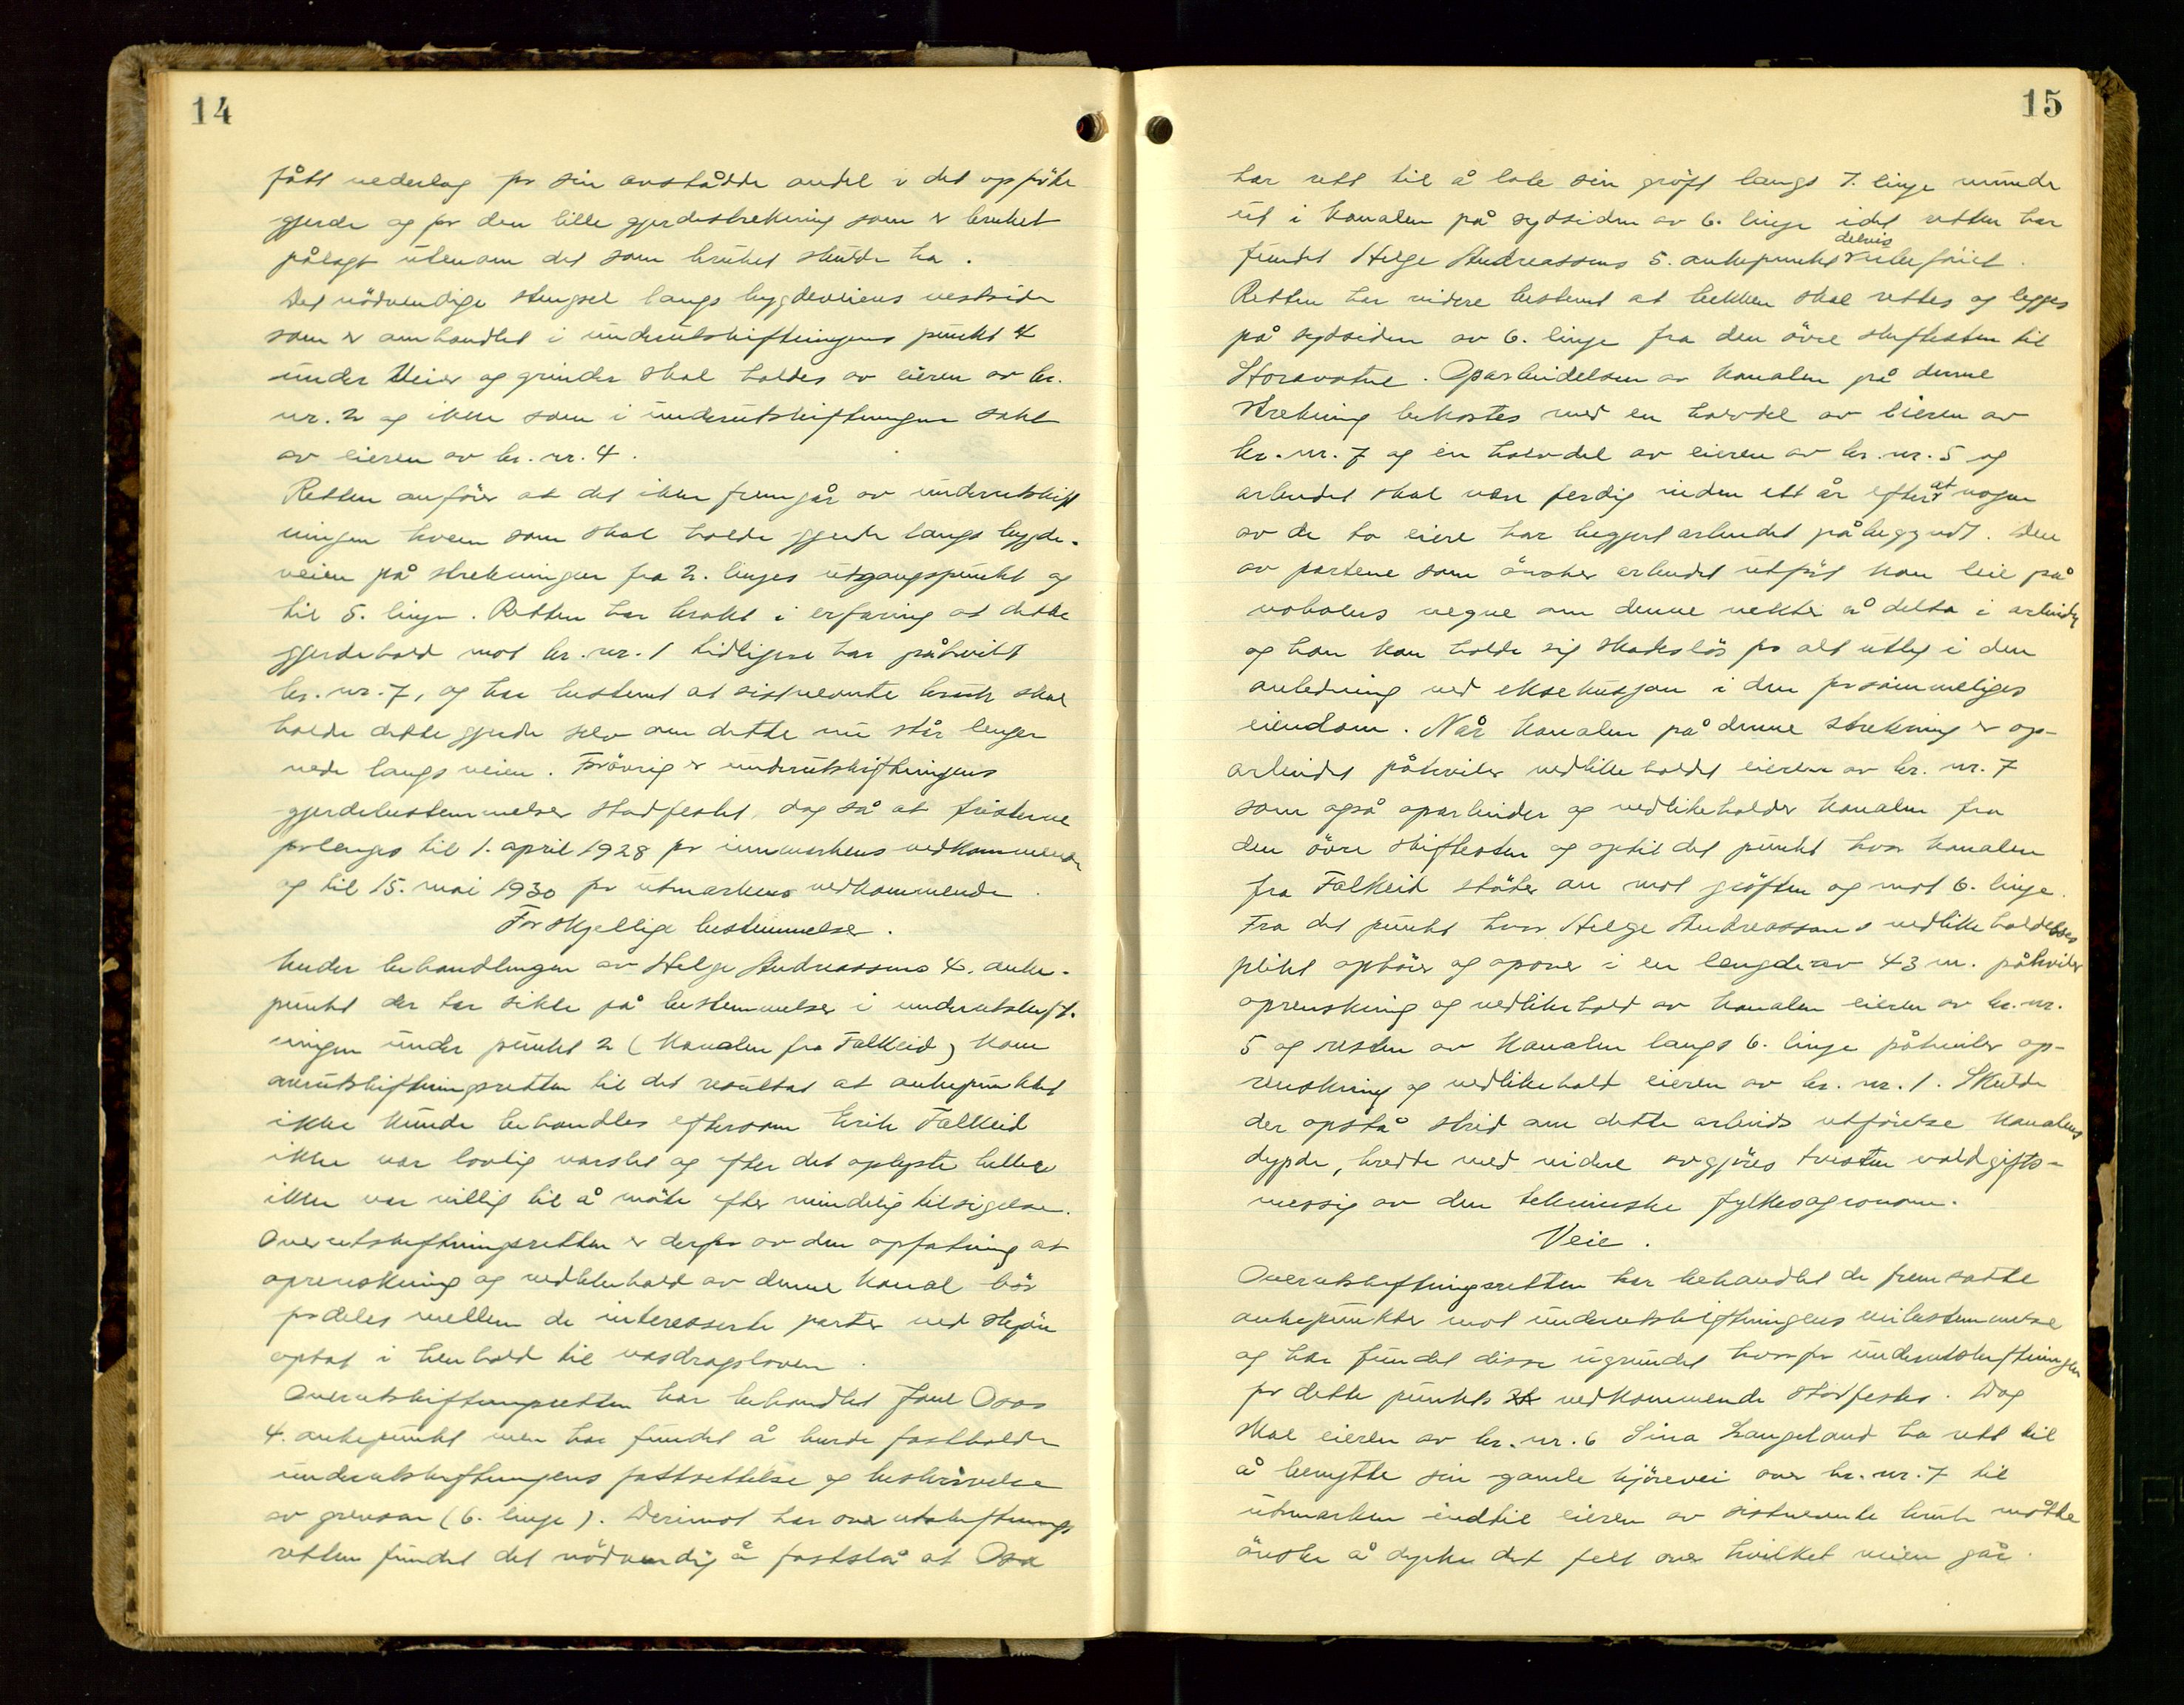 14
fått vederlag for sin avståtte andel i det opførte
gjerde og for den lille gjerdestrekning som er bruket
pålagt utenom det som bruket skulde ha.
Det nödvendige stengsel langs bygdeveiens vestside
som er omhandlet i underutskiftningens punkt 4
under Veier og grinder skal holdes av eieren av br.
nr. 2 og ikke som i underutskiftningen sakt
av eieren av br. nr. 4.
Retten anförer at det ikke fremgår av underutskift
ningen hvem som skal holde gjerde langs bygde-
veien på strekningen fra 2. linjes utgangspunkt og
til 5. linje. Retten har brakt i erfaring at dette
gjerdehold mot br. nr. 1 tidligere har påhvilt
br. nr. 7, og har bestemt at sistnevnte bruk skal
holde dette gjerde selv om dette nu står lenger
nede langs veien. Forövrig er underutskiftningens
gjerdebestemmelser stadfestet, dog så at fristerne
forlenges til 1. april 1928 for innmarkens vedkommende
og til 15. mai 1930 for utmarkens vedkommende.
Forskjellige bestemmelser.
Under behandlingen av Helge Andreassens 4. anke-
punkt der tar sikte på bestemmelser i underutskift-
ningen under punkt 2 (Kanalen fra Falkeid) kom
overutskiftningsretten til det resultat at ankepunktet
ikke kunde behandles eftersom Erik Falkeid
ikke var lovlig varslet og efter det oplyste heller
ikke var villig til å möte efter mindelig tilsigelse.
Overutskiftningsretten er derfor av den opfatning at
oprenskning og vedlikehold av denne kanal bör
fordeles mellem de interesserte parter ved skjön
optat i henhold til vasdragsloven.
Overutskiftningsretten har behandlet Jone Osas
4. ankepunkt men har fundet å burde fastholde
underutskiftningens fastsettelse og beskrivelse
av grensen (6. linje). Derimot har overutskiftnings
retten fundet det nödvendig å fastslå at Osa
15
har rett til å late sin gröft langs 7. linje munde
ut i kanalen på sydsiden av 6. linje idet retten har
fundet Helge Andreassens 5. ankepunkt delvis beföiet.
Retten har videre bestemt at bekken skal rettes og legges
på sydsiden av 6. linje fra den övre skiftesten til
Storavatne. Oparbeidelsen av kanalen på denne
strekning bekostes med en halvdel av eieren av
br. nr. 7 og en halvdel av eieren av br. nr. 5 og
arbeidet skal være ferdig inden ett år efter at nogen
av de to eiere har begjert arbeidet påbegyndt. Den
av partene som önsker arbeidet utfört kan leie på
naboens vegne om denne vekter å delta i arbeidet
og han kan holde sig skadeslös for alt utleg i den
anledning ved eksekusjon i den forsömmeliges
eiendom. Når kanalen på denne strekning er op-
arbeidet påhviler vedlikeholdet eieren av br. nr. 7
som også oparbeider og vedlikeholder kanalen fra
den övre skiftesten og optil det punkt hvor kanalen
fra Falkeid stöter an mot gröften og mot 6. linje.
Fra det punkt hvor Helge Andreassens vedlikeholdelses
plikt ophörer og opover i en lengde av 43 m. påhviler
oprenskning og vedlikehold av kanalen eieren av br. nr.
5 og resten av kanalen langs 6. linje påhviler op-
renskning og vedlikehold eieren av br. nr. 1. Skulde
der opstå strid om dette arbeids utförelse kanalens
dypde, bredde med videre avgjöres tvisten voldgifts-
messig av den tekniske fylkesagronom.
Veie.
Overutskiftningsretten har behandlet de fremsatte
ankepunkter mot underutskiftningens veibestemmelse
og har fundet disse ugrundet hvorfor underutskiftningen
for dette punkts vedkommende stadfestes. Dog
skal eieren av br. nr. 6 Sina Langeland ha rett til
å benytte sin gamle kjörevei over br. nr. 7 til
utmarken indtil eieren av sistnevnte bruk måtte
önske å dyrke det felt over hvilket veien går.